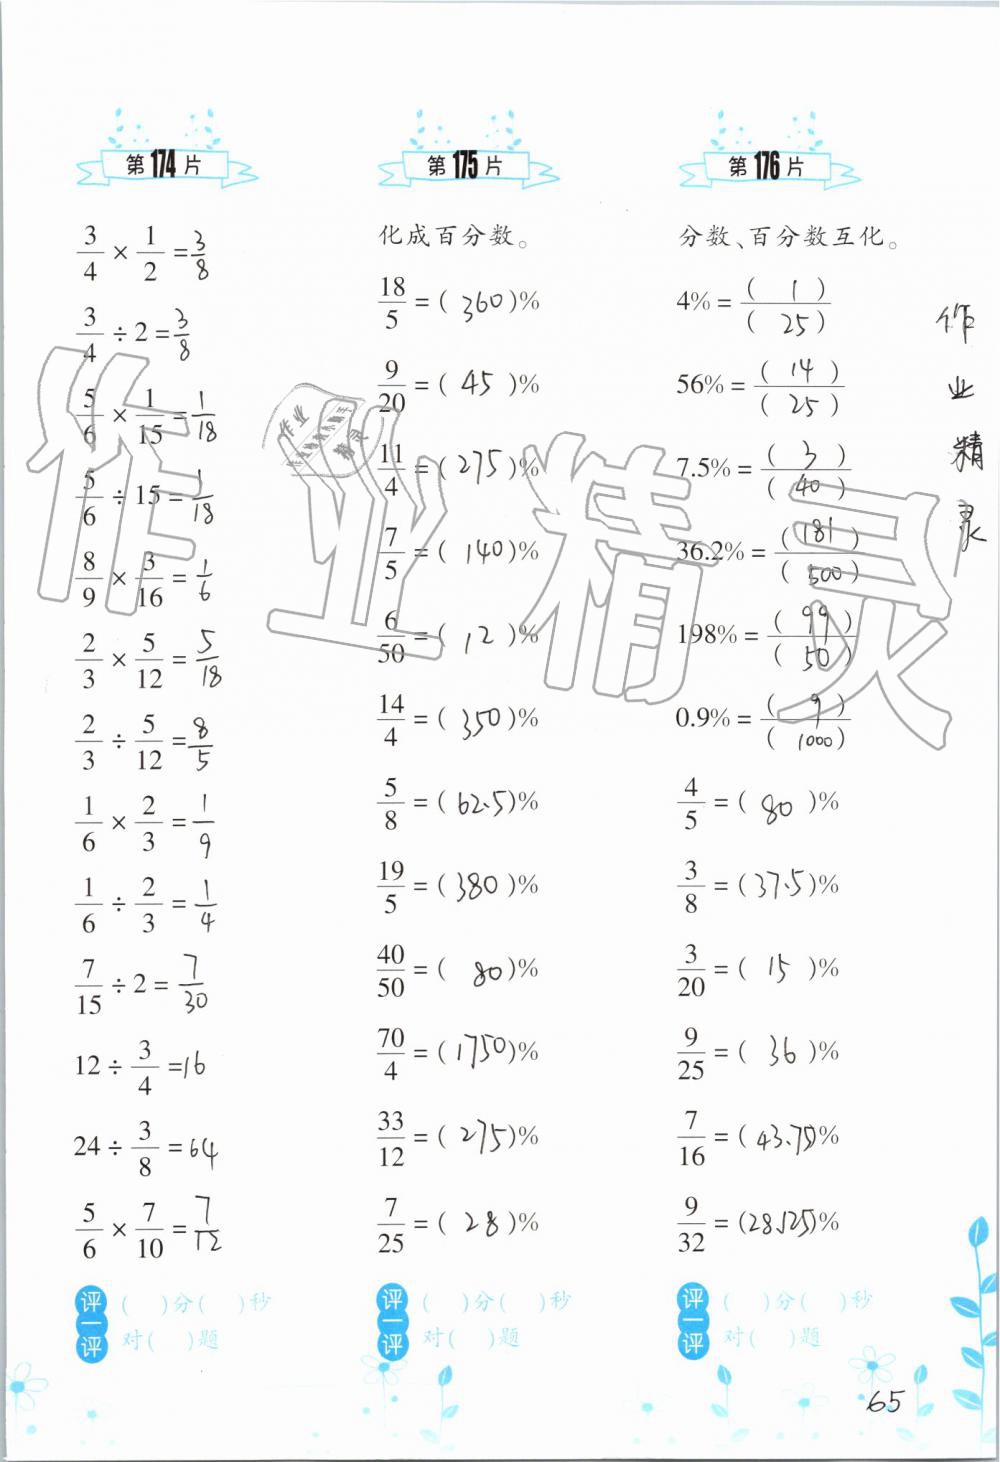 第174片
3/4 × 1/2 = 3/8
3/4 ÷ 2 = 3/8
5/6 × 1/15 = 1/18
5/6 ÷ 15 = 1/18
8/9 × 3/16 = 1/6
2/3 × 5/12 = 5/18
2/3 ÷ 5/12 = 8/5
1/6 × 2/3 = 1/9
1/6 ÷ 2/3 = 1/4
7/15 ÷ 2 = 7/30
12 ÷ 3/4 = 16
24 ÷ 3/8 = 64
5/6 × 7/10 = 7/12
评一评
( )分( )秒
对( )题
第175片
化成百分数。
18/5 = ( 360 )%
9/20 = ( 45 )%
11/4 = ( 275 )%
7/5 = ( 140 )%
6/50 = ( 12 )%
14/4 = ( 350 )%
5/8 = ( 62.5 )%
19/5 = ( 380 )%
40/50 = ( 80 )%
70/4 = ( 1750 )%
33/12 = ( 275 )%
7/25 = ( 28 )%
评一评
( )分( )秒
对( )题
第176片
分数、百分数互化。
4% = ( 1 )/( 25 )
56% = ( 14 )/( 25 )
7.5% = ( 3 )/( 40 )
36.2% = ( 181 )/( 500 )
198% = ( 99 )/( 50 )
0.9% = ( 9 )/( 1000 )
4/5 = ( 80 )%
3/8 = ( 37.5 )%
3/20 = ( 15 )%
9/25 = ( 36 )%
7/16 = ( 43.75 )%
9/32 = ( 28.125 )%
评一评
( )分( )秒
对( )题
作业精灵
作业精灵
65